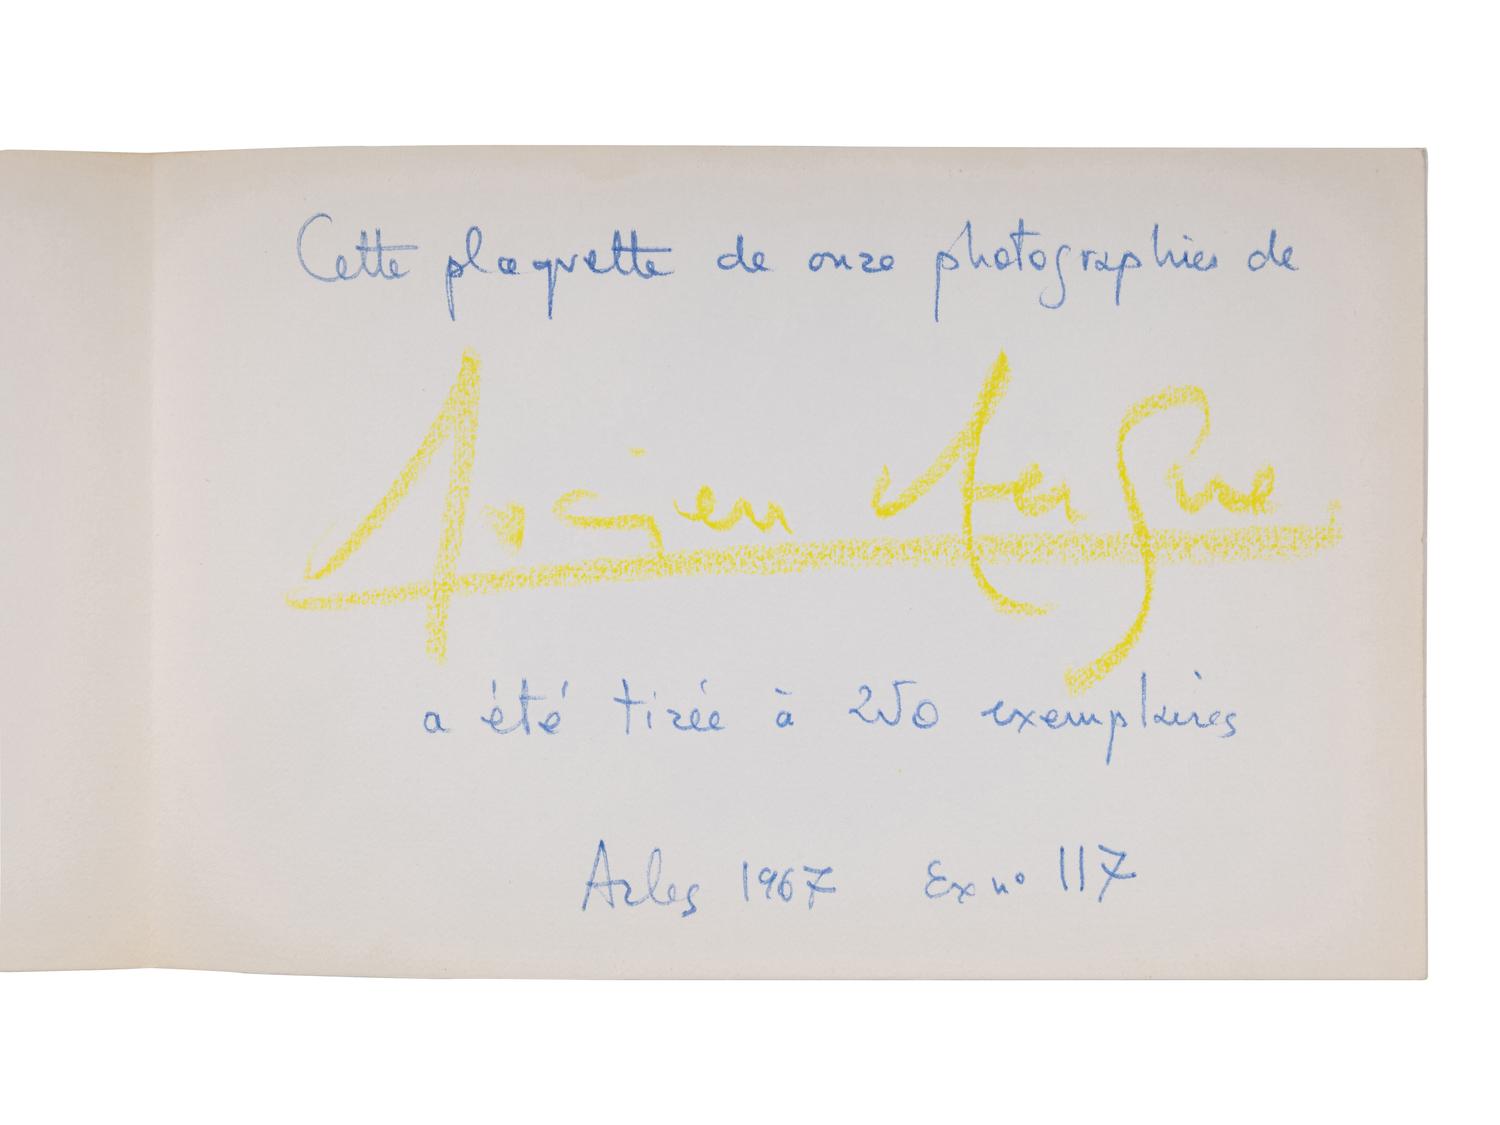 Cette plaquette de onze photographies de
Lucien Clergue
a été tirée à 250 exemplaires
Arles 1967 Ex nº 117